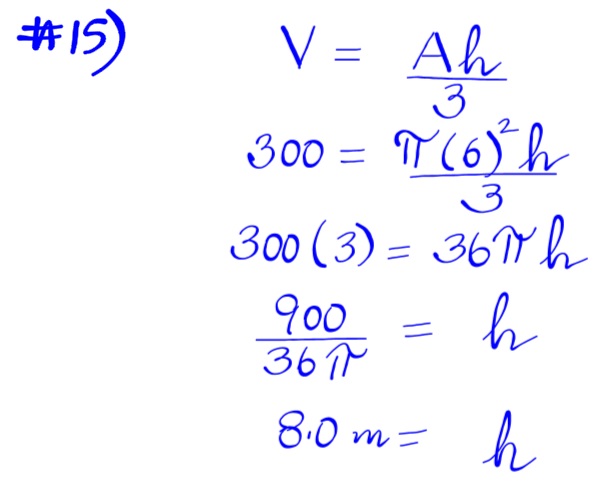 #15) V = Ah/3
300 = π(6)²h/3
300(3) = 36πh
900/36π = h
8.0 m = h